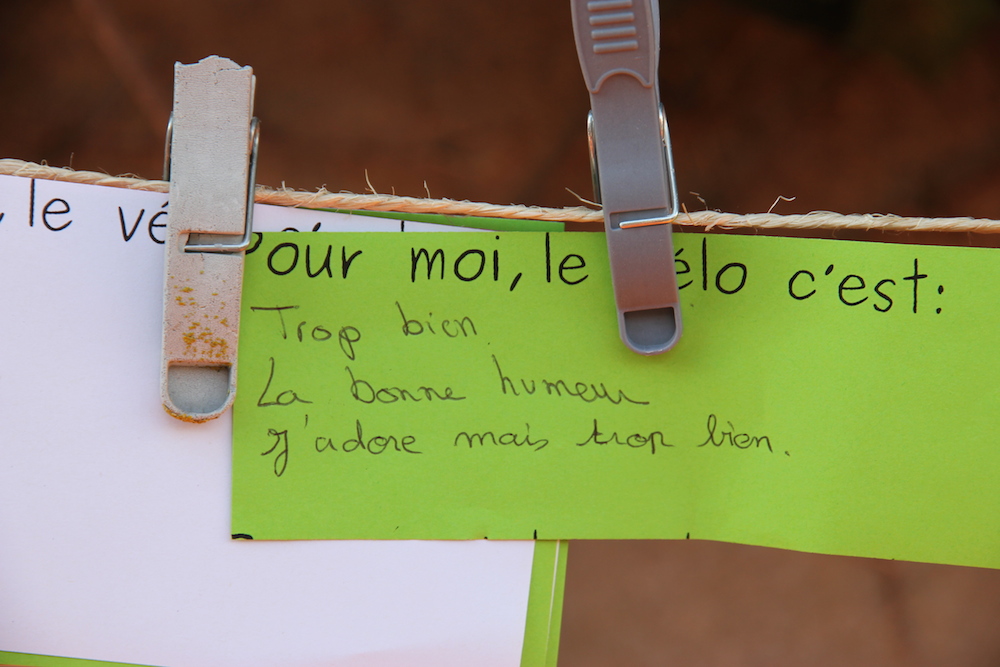 , le vé
Pour moi, le vélo c'est:
Trop bien
La bonne humeur
J'adore mais trop bien.